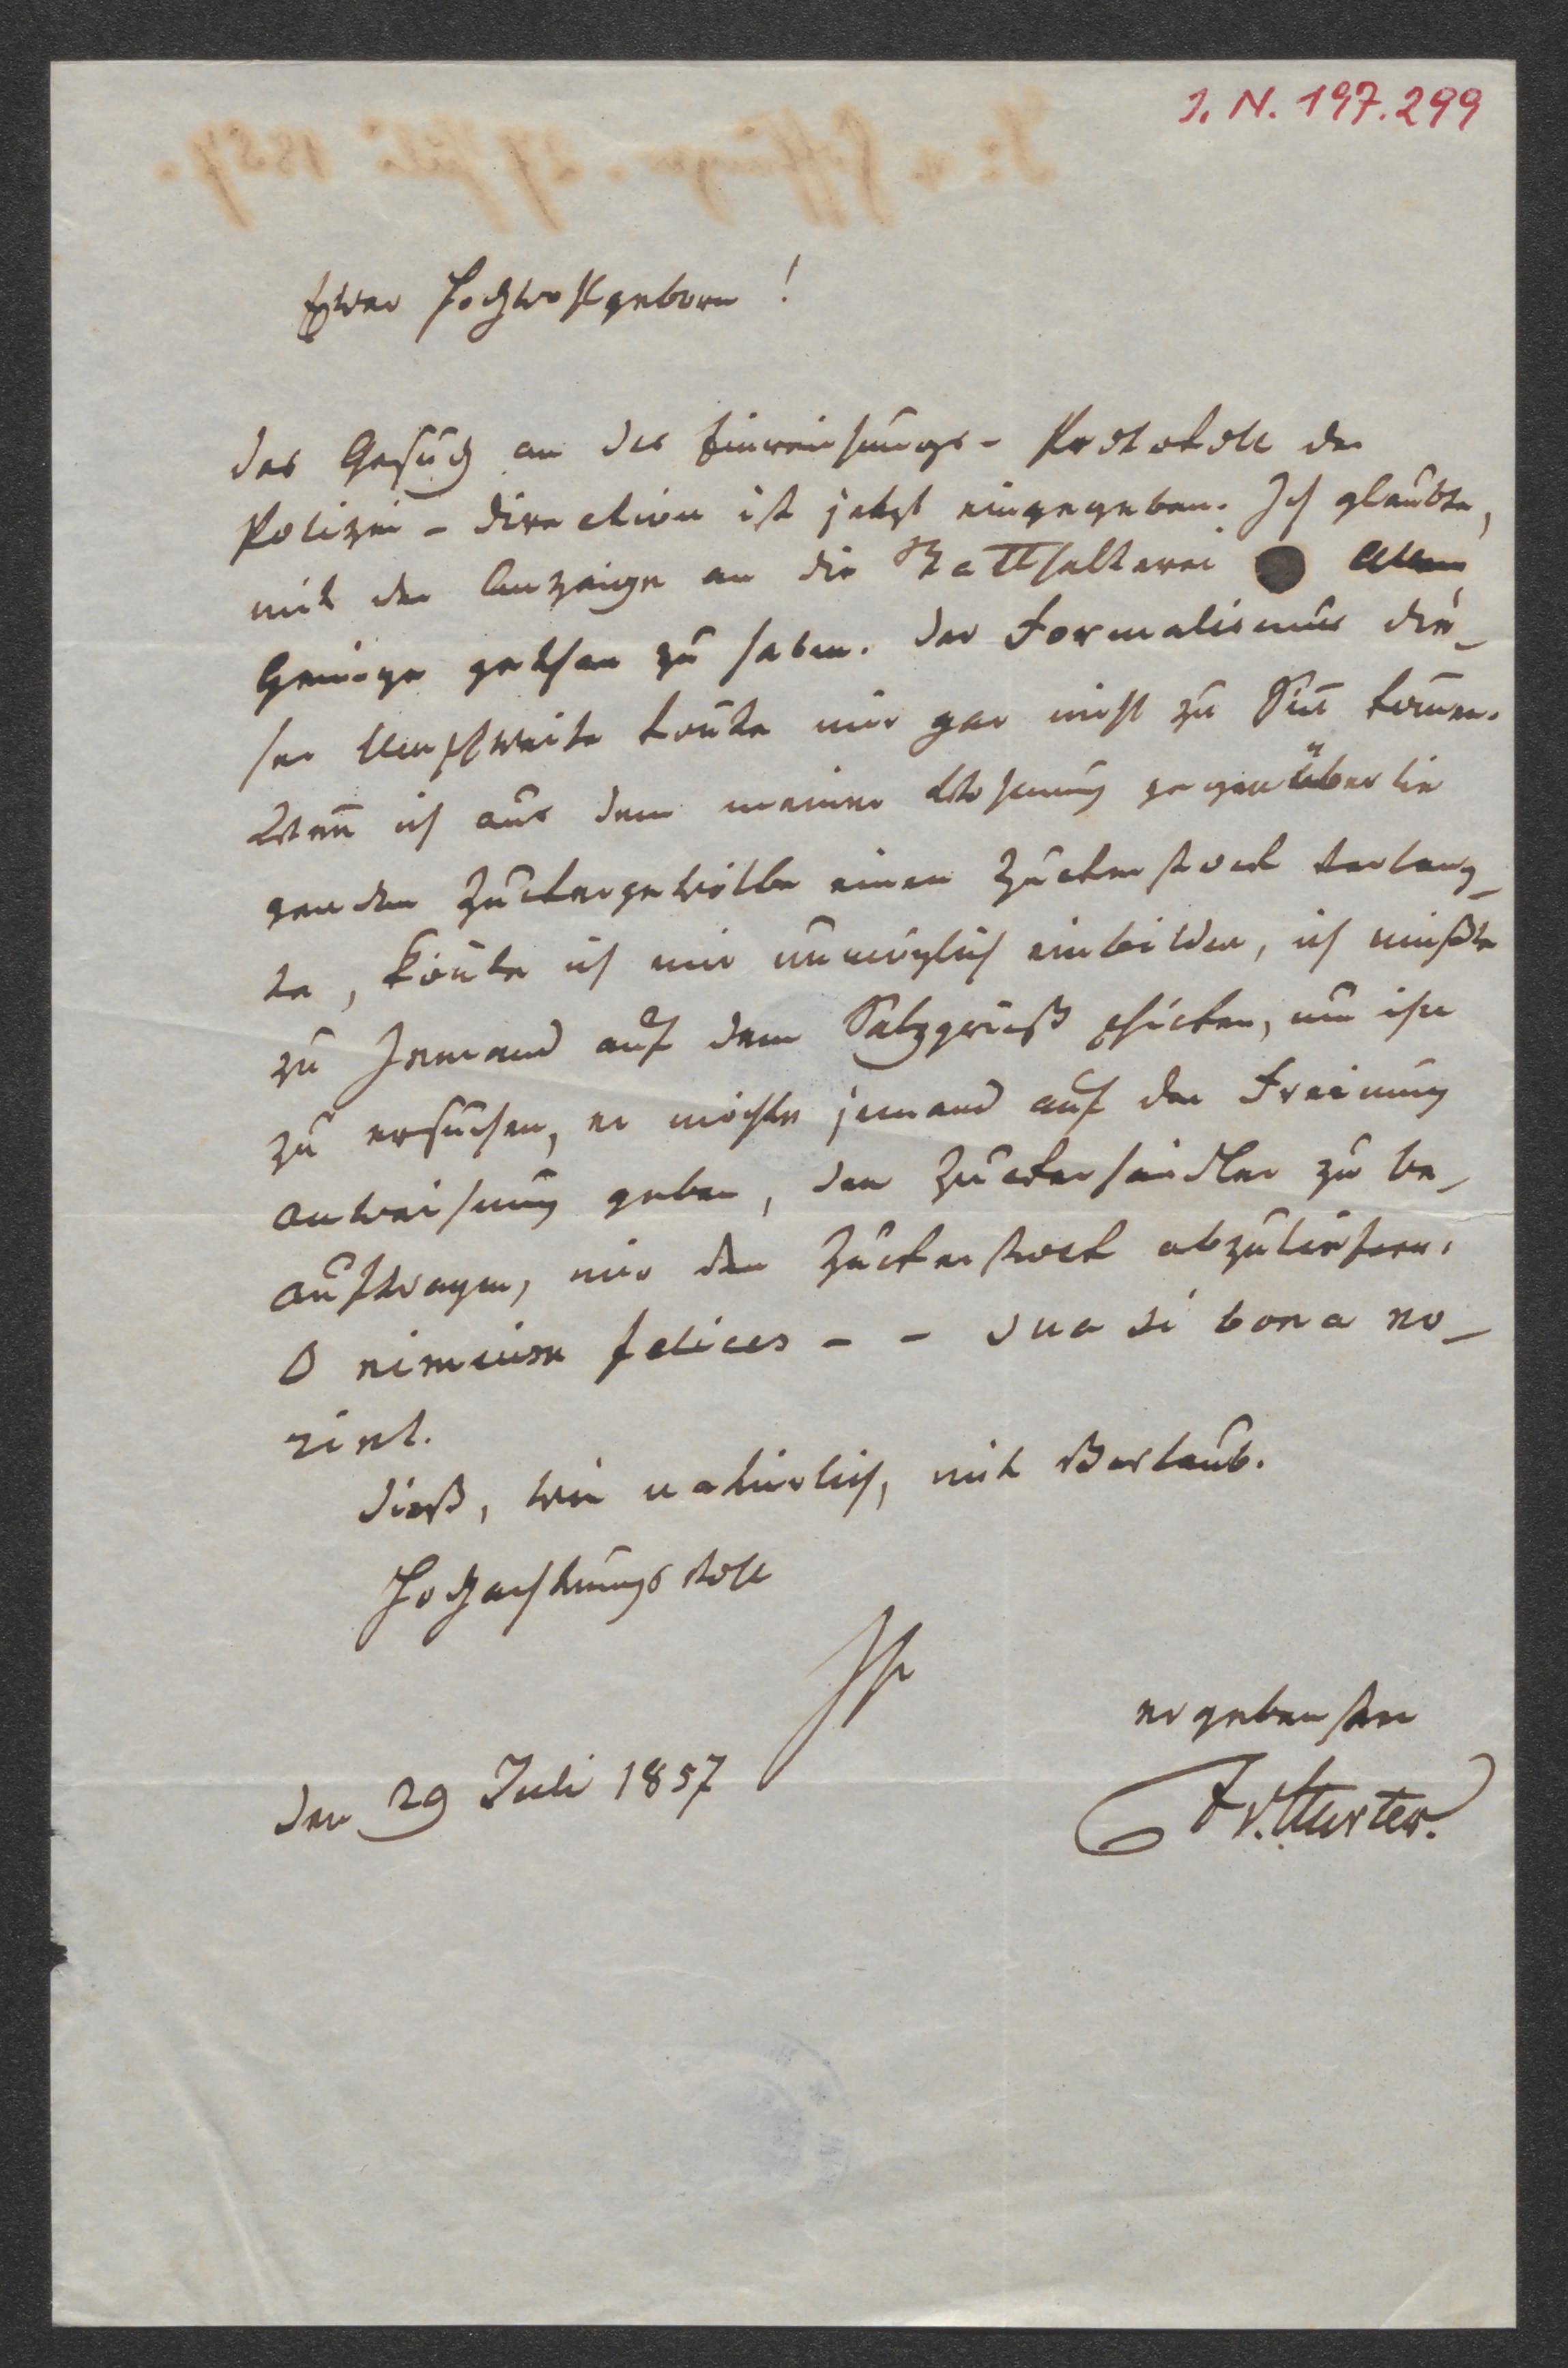 I. N. 197.299
Euer Hochwohlgeborn!
das Gesuch an das Einreichungs- Protokoll der
Polizei-direction ist jetzt eingegeben. Ich glaubte,
mit der Anzeige an die Statthalterei Allem
Genüge gethan zu haben. Der Formalismus die-
ser konnte mir gar nicht zu Sinn kommen.
Wenn ich aus dem meiner Wohnung gegenüber lie
genden Zuckergewölbe einen Zuckerstock verlang-
te, könnte ich mir unmöglich einbilden, ich müßte
zu Jemand auf dem Salzgrieß schicken, um ihn
zu ersuchen, er möchte jemand auf der Freiung
anweisung geben, den Zuckerhändler zu be-
auftragen, mir den Zuckerstock abzuliefern.
O nimium felices - - sua si bona no-
rint.
Dieß, wie natürlich, mit Verlaub.
Hochachtungsvoll
Ihr
ergebenster
den 29 Juli 1857
Fr. v. Hurter.